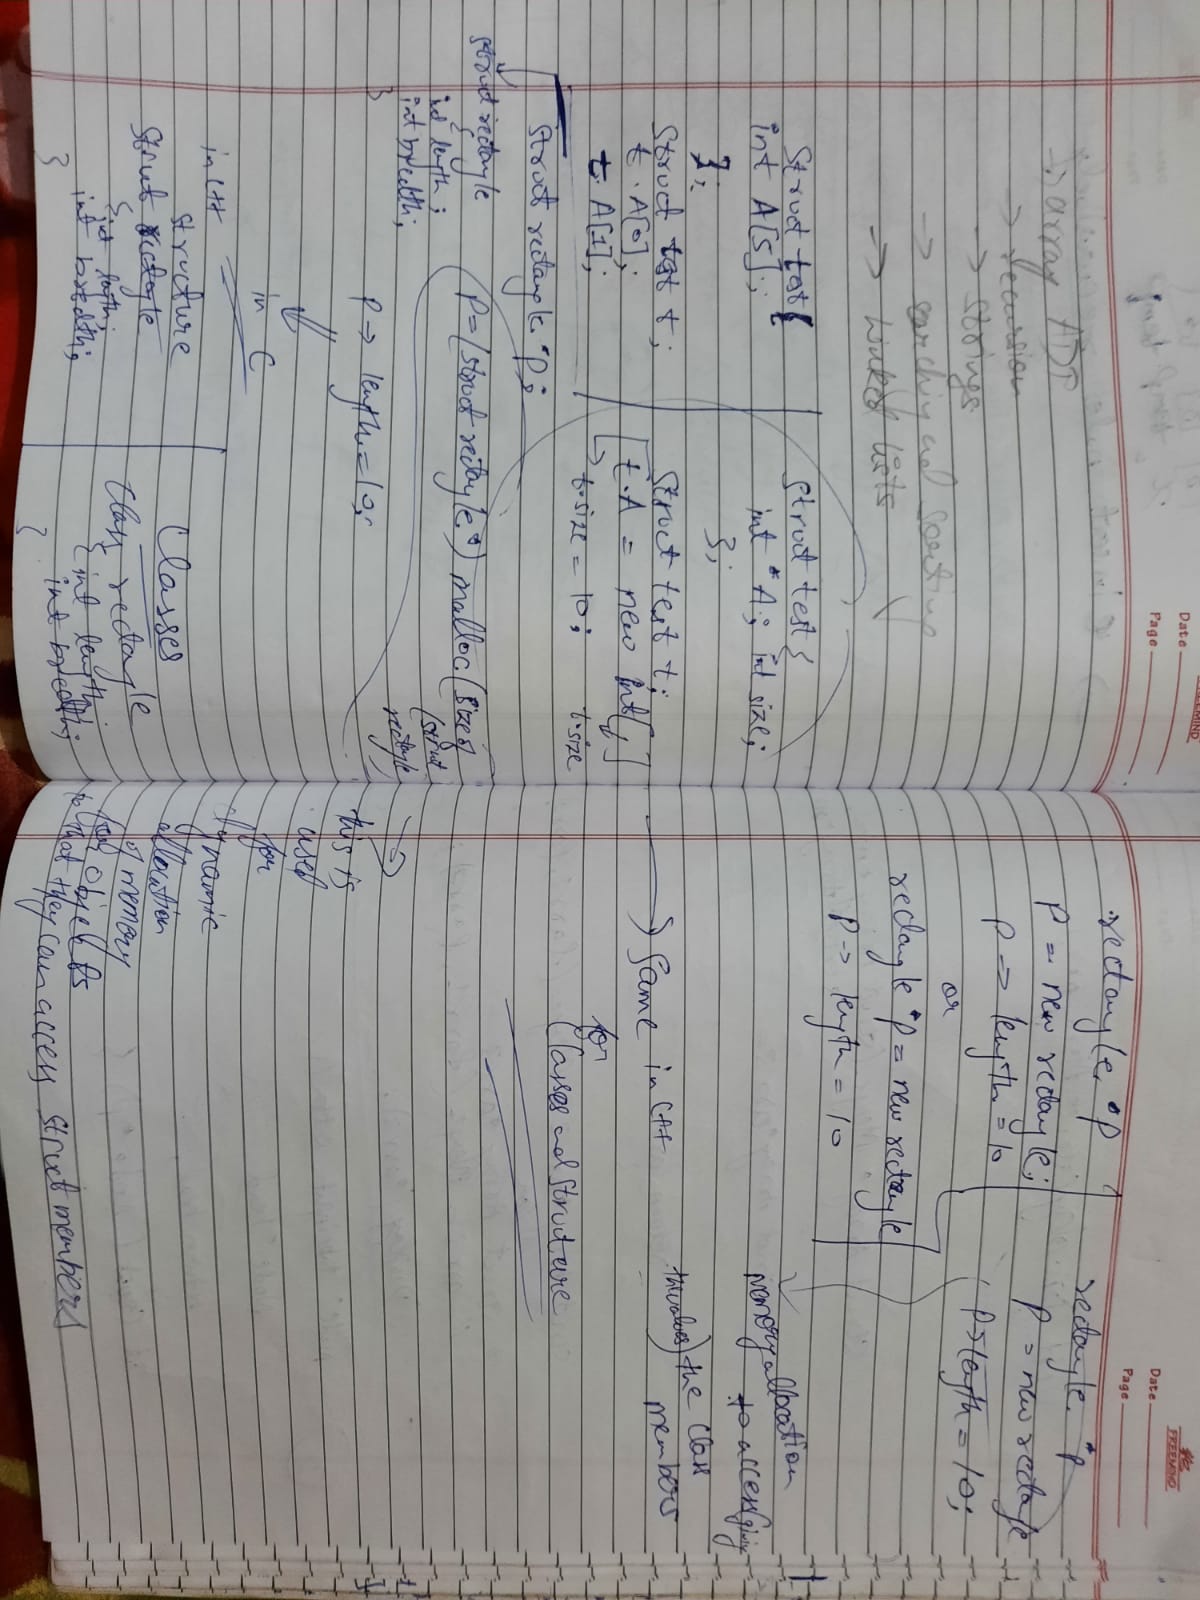 FREEMIND
Date
Page
array ADT
→ recursion
→ strings
→ searching and sorting
→ Linked lists
struct test{
int A[5];
};
struct test t;
t.A[0];
t.A[1];
struct test{
int *A; int size;
};
struct test t;
t.A = new int[ ]
t.size = 10; t.size
struct rectangle *p;
struct rectangle
{
int length;
int breadth;
}
p=(struct rectangle*) malloc(sizeof
(struct
rectangle
p→ length=10;
in C
in C++
structure
struct rectangle
{int length;
int breadth;
}
Classes
Class rectangle
{int length;
int breadth;
}
FREEMIND
Date
Page
rectangle *p
P = new rectangle;
p → length = 10
or
rectangle *p = new rectangle
p-> length = 10
rectangle *p
p = new rectangle
p→length = 10;
Memory allocation
to access(giving
the values) the class
members
→ Same in C++
for
Classes and structure
this is
used
for
dynamic
allocation
of memory
for objects
so that they can access struct members